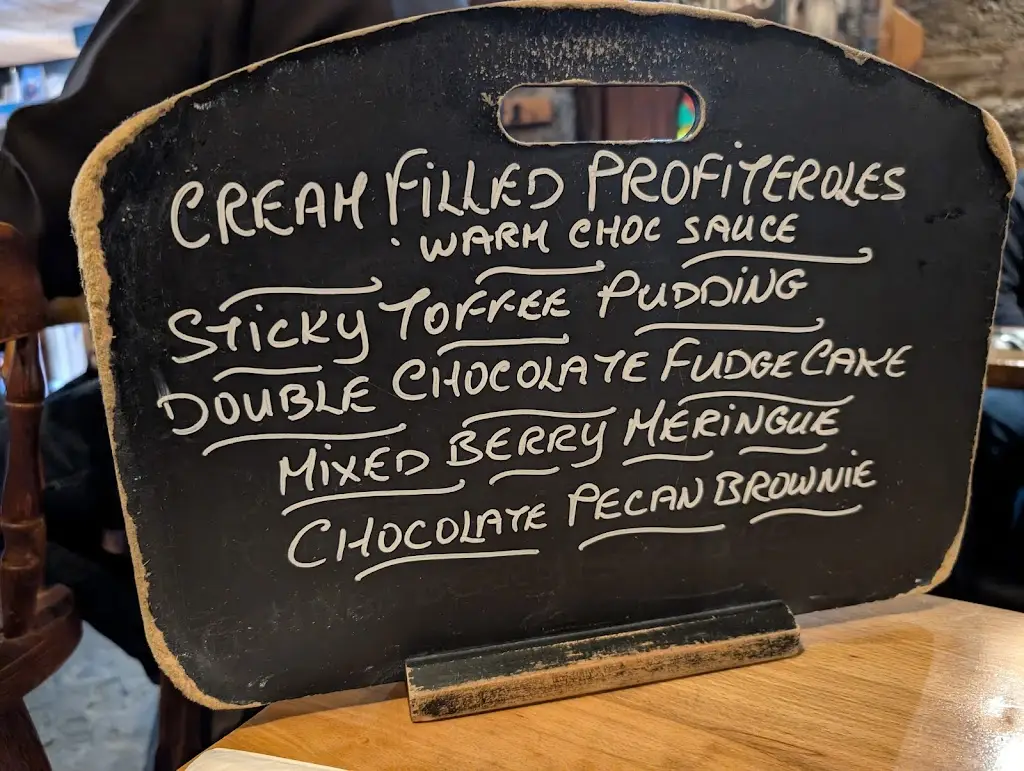 CREAM FILLED PROFITEROLES
· WARM CHOC SAUCE
STICKY TOFFEE PUDDING
DOUBLE CHOCOLATE FUDGE CAKE
MIXED BERRY MERINGUE
CHOCOLATE PECAN BROWNIE